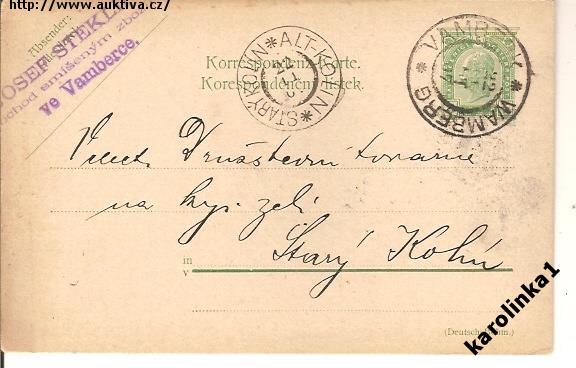 http://www.auktiva.cz/
Absender:
JOSEF STEKL
obchod smíšeným zbož
ve Vamberce.
Korrespondenz-Karte.
Korespondenční lístek.
*ALT-KOLIN*STARÝ KOLÍN
VAMBERK * WAMBERG *
Velect. Družstevní továrně
na kys. zelí
Starý Kolín
in
v
(Deutsch-böhm.)
karolinka1